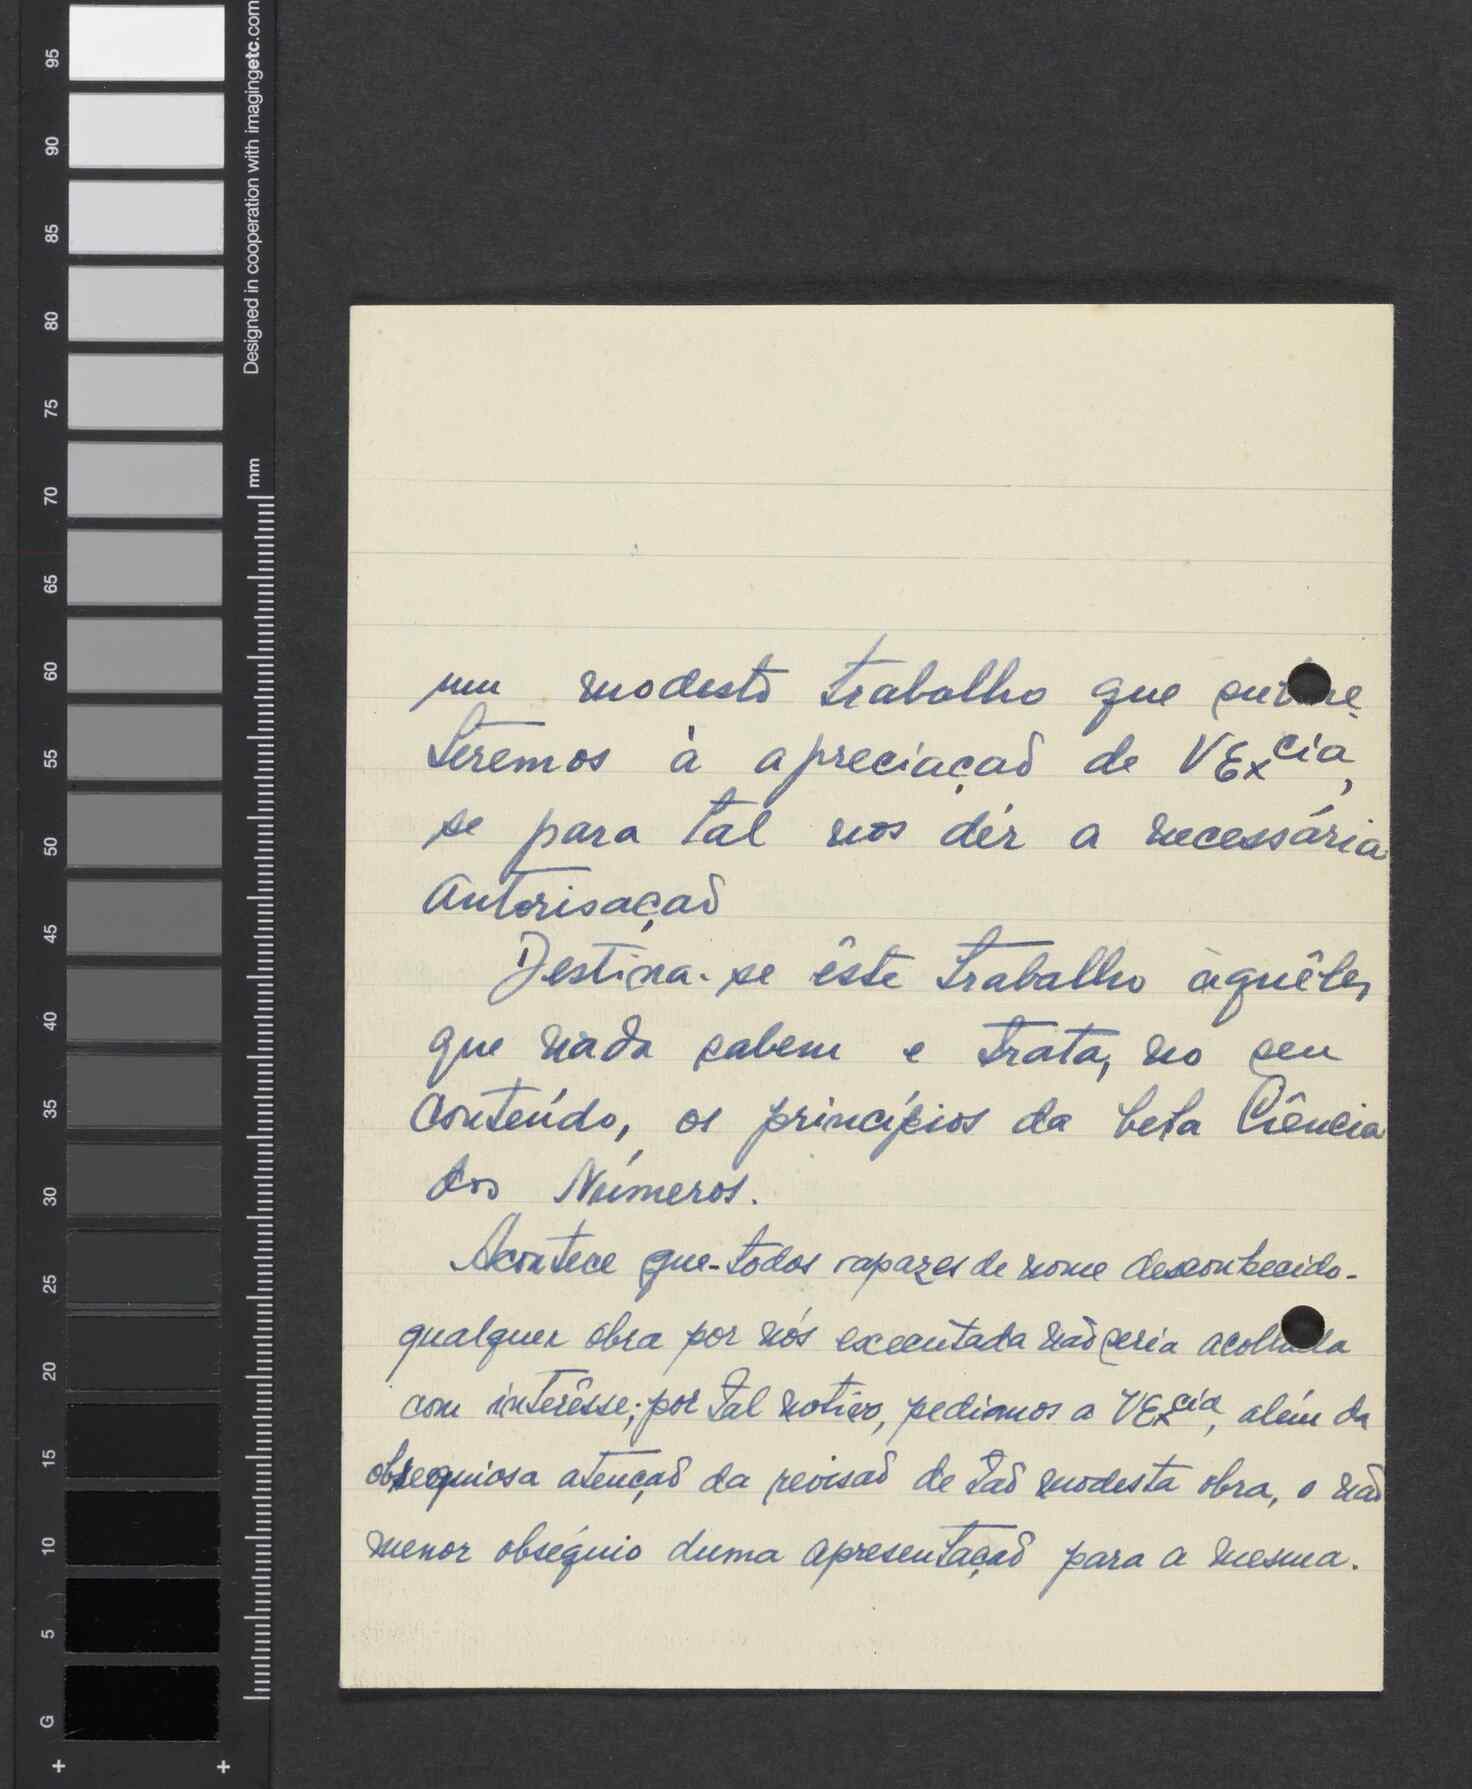 95
90
85
80
75
70
65
60
55
50
45
40
35
30
25
20
15
10
5
G
Designed in cooperation with imagingetc.com
mm
um modesto trabalho que subme
teremos à apreciação de VExcia,
se para tal nos dér a necessária
autorisação
Destina-se êste trabalho àquêles
que nada sabem e trata, no seu
conteúdo, os princípios da bela Ciência
dos Números.
Acontece que-todos rapazes de nome desconhecido-
qualquer obra por nós executada não seria acolhida
com interêsse; por tal motivo, pedíamos a VExcia, além da
obsequiosa atenção da revisão de tão modesta obra, o não
menor obséquio duma apresentação para a mesma.